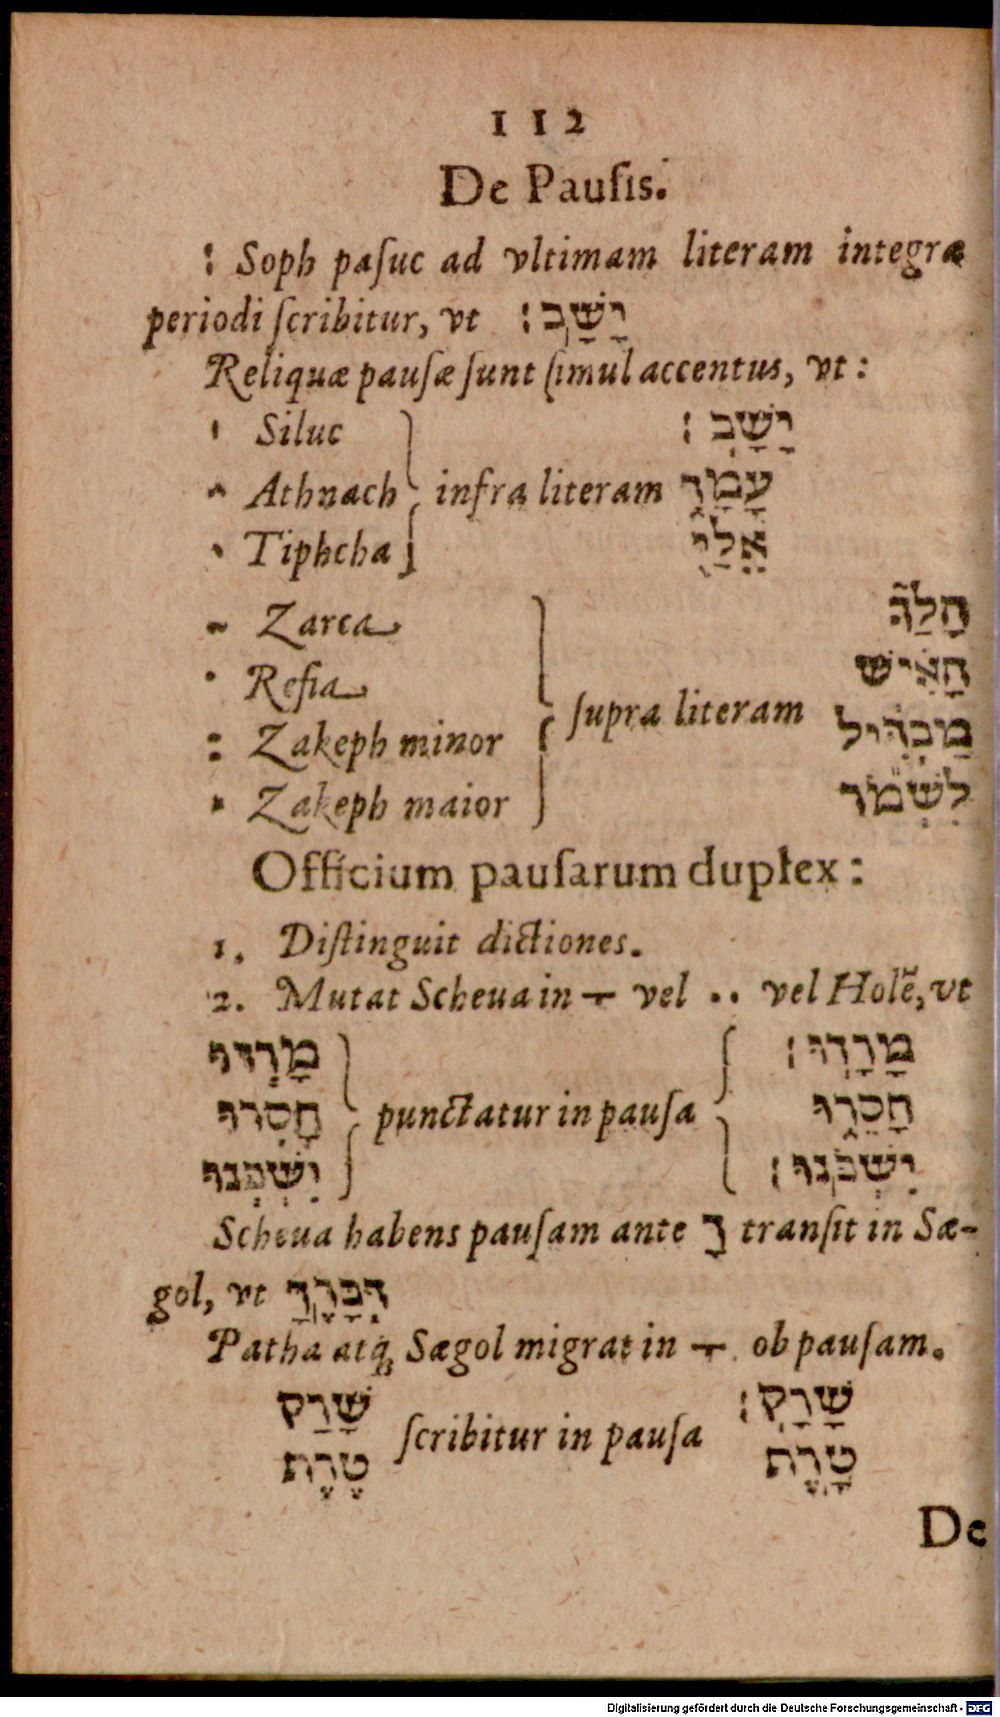 112
De Pausis.
׃ Soph pasuc ad vltimam literam integræ
periodi scribitur, vt יָשָֽׁב׃
Reliquæ pausæ sunt simul accentus, vt:
Siluc יָשָֽׁב׃
Athnach infra literam עָמָ֑ד
Tiphcha אֵלַ֖י
Zarca
Resia הָאִ֗ישׁ
Zakeph minor supra literam מַבְדִּ֔יל
Zakeph maior לִשְׁמֹ֕ר
Officium pausarum duplex:
1. Distinguit dictiones.
2. Mutat Scheua in ָ vel ֵ vel Holẽ, vt
מָרְדוּ מָרָֽדוּ׃
חָסְרוּ punctatur in pausa חָסֵ֑רוּ
יִשְׁכְּנוּ יִשְׁכֹּֽנוּ׃
Scheua habens pausam ante ךָ transit in Sæ-
gol, vt דְּבָרֶֽךָ
Patha atq; Sægol migrat in ָ ob pausam.
שָׁרַק שָׁרָֽק׃
scribitur in pausa
טֶרֶת טָֽרֶת
De
Digitalisierung gefördert durch die Deutsche Forschungsgemeinschaft - DFG